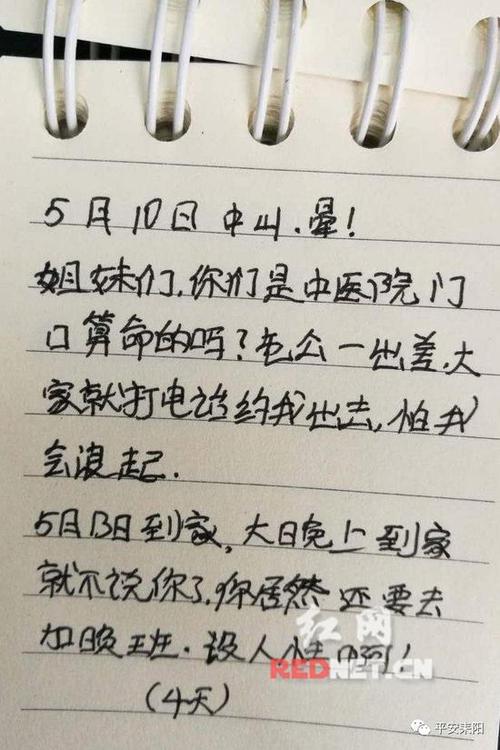 5月10日 中山.晕!
姐妹们,你们是中医院门
口算命的吗?老公一出差,大
家就打电话约我出去,怕我
会浪起.
5月13日到家,大日晚上到家
就不说你了,你居然还要去
加晚班.没人性啊!
(4天)
红网
REDNET.CN
平安耒阳